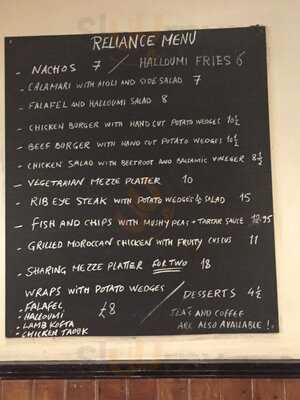 RELIANCE MENU
- NACHOS 7 / HALLOUMI FRIES 6
- CALAMARI WITH AIOLI AND SIDE SALAD 7
- FALAFEL AND HALLOUMI SALAD 8
- CHICKEN BURGER WITH HAND CUT POTATO WEDGES 10½
- BEEF BURGER WITH HAND CUT POTATO WEDGES 10½
- CHICKEN SALAD WITH BEETROOT AND BALSAMIC VINEGER 8½
- VEGETARIAN MEZZE PLATTER 10
- RIB EYE STEAK WITH POTATO WEDGES & SALAD 15
- FISH AND CHIPS WITH MUSHY PEAS + TARTAR SAUCE 12.95
- GRILLED MOROCCAN CHICKEN WITH FRUITY CUSCUS 11
- SHARING MEZZE PLATTER FOR TWO 18
WRAPS WITH POTATO WEDGES
- FALAFEL £8
- HALLOUMI
- LAMB KOFTA
- CHICKEN TAOUK
DESSERTS 4½
TEA'S AND COFFEE
ARE ALSO AVAILABLE !